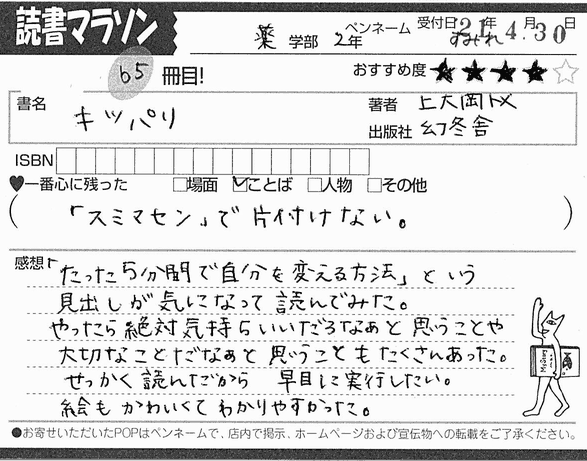 読書マラソン
薬 学部 2年 ペンネーム すみれ 受付日 21年 4月 30日
65 冊目! おすすめ度 ★★★★☆
書名 キッパリ
著者 上大岡トメ
出版社 幻冬舎
ISBN
♥一番心に残った □場面 ☑ことば □人物 □その他
(「スミマセン」で片付けない。)
感想「たった5分間で自分を変える方法」という
見出しが気になって読んでみた。
やったら絶対気持ちいいだろなぁと思うことや
大切なことだなぁと思うこともたくさんあった。
せっかく読んだから 早目に実行したい。
絵もかわいくてわかりやすかった。
●お寄せいただいたPOPはペンネームで、店内で掲示、ホームページおよび宣伝物への転載をご了承ください。